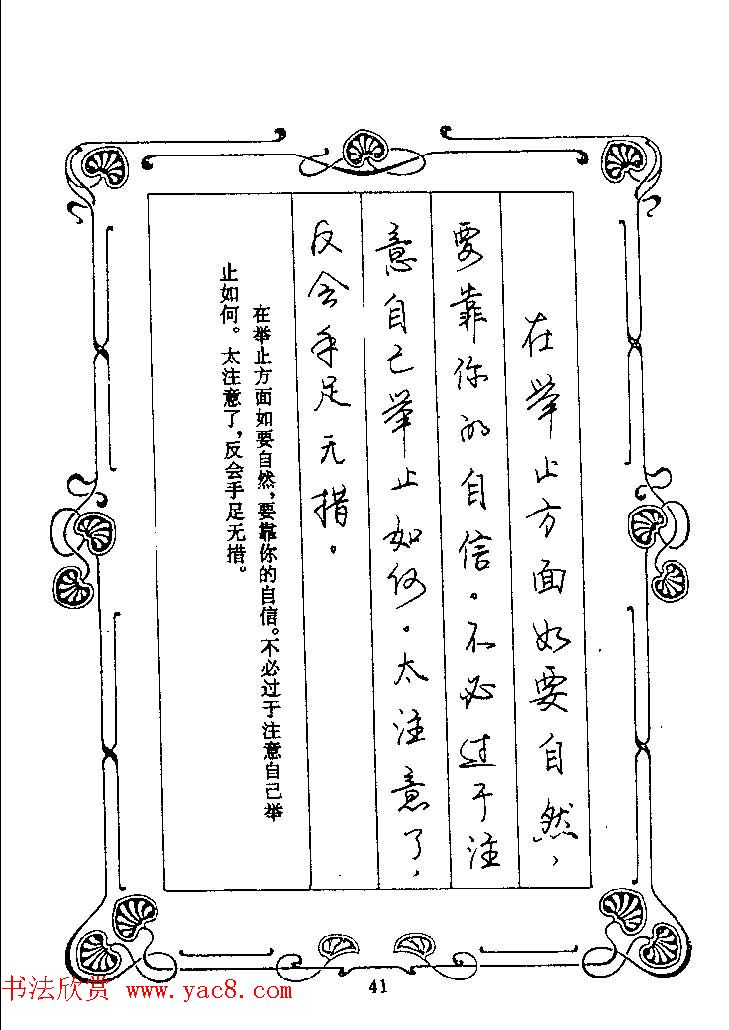 在举止方面如要自然，
要靠你的自信。不必过于注
意自己举止如何。太注意了，
反会手足无措。
在举止方面如要自然，要靠你的自信。不必过于注意自己举
止如何。太注意了，反会手足无措。
41
书法欣赏 www.yac8.com